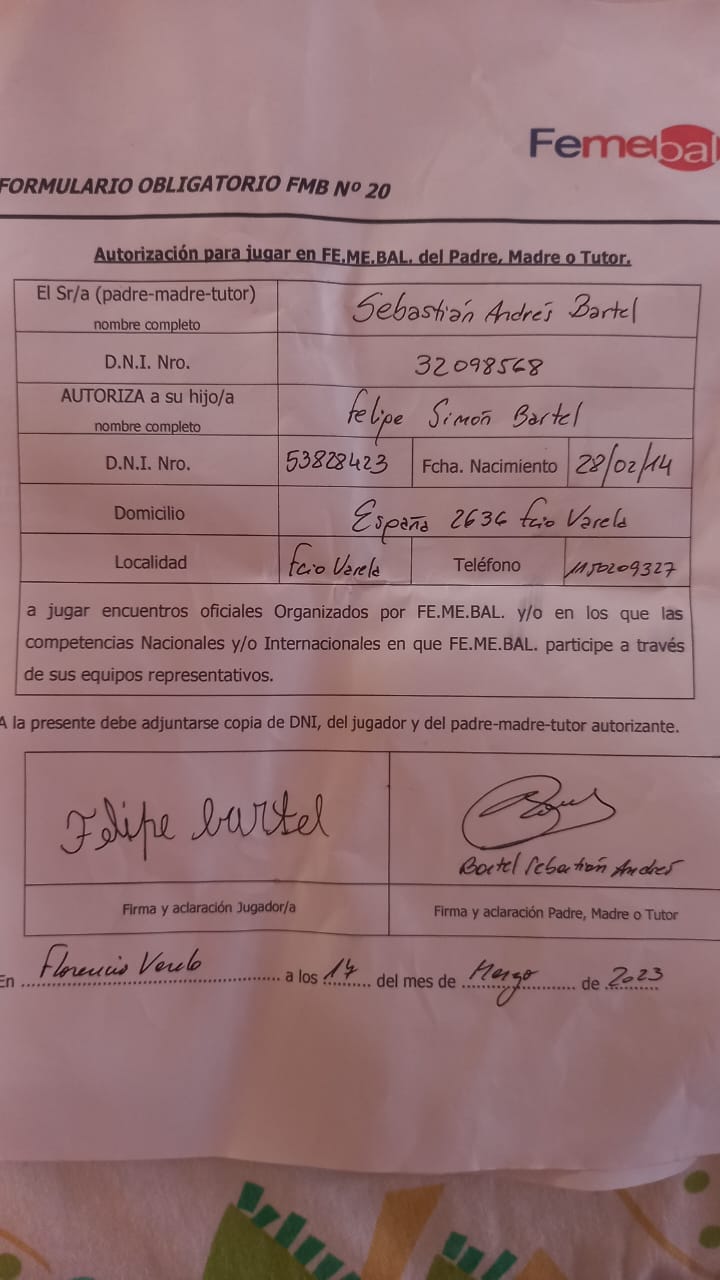 Femebal
FORMULARIO OBLIGATORIO FMB Nº 20
Autorización para jugar en FE.ME.BAL. del Padre, Madre o Tutor.
El Sr/a (padre-madre-tutor) nombre completo Sebastián Andrés Bartel
D.N.I. Nro. 32098568
AUTORIZA a su hijo/a nombre completo Felipe Simón Bartel
D.N.I. Nro. 53828423 Fcha. Nacimiento 28/02/14
Domicilio España 2636 fcio Varela
Localidad fcio Varela Teléfono 1150209327
a jugar encuentros oficiales Organizados por FE.ME.BAL. y/o en los que las
competencias Nacionales y/o Internacionales en que FE.ME.BAL. participe a través
de sus equipos representativos.
A la presente debe adjuntarse copia de DNI, del jugador y del padre-madre-tutor autorizante.
Felipe bartel
Bartel Sebastián Andrés
Firma y aclaración Jugador/a Firma y aclaración Padre, Madre o Tutor
En Florencio Varela a los 17 del mes de Marzo de 2023